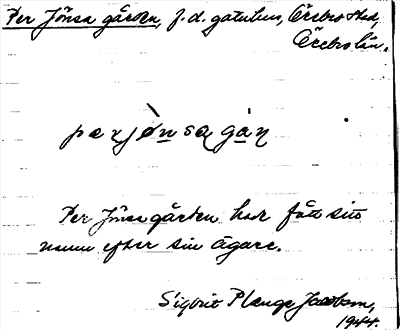 Per Jönsa gården, f.d. gatuhus, Örebro stad,
Örebro län.
pærjø̀nsagán
Per Jönsa gården har fått sitt
namn efter sin ägare.
Sigbrit Plænge Jacobson,
1944.